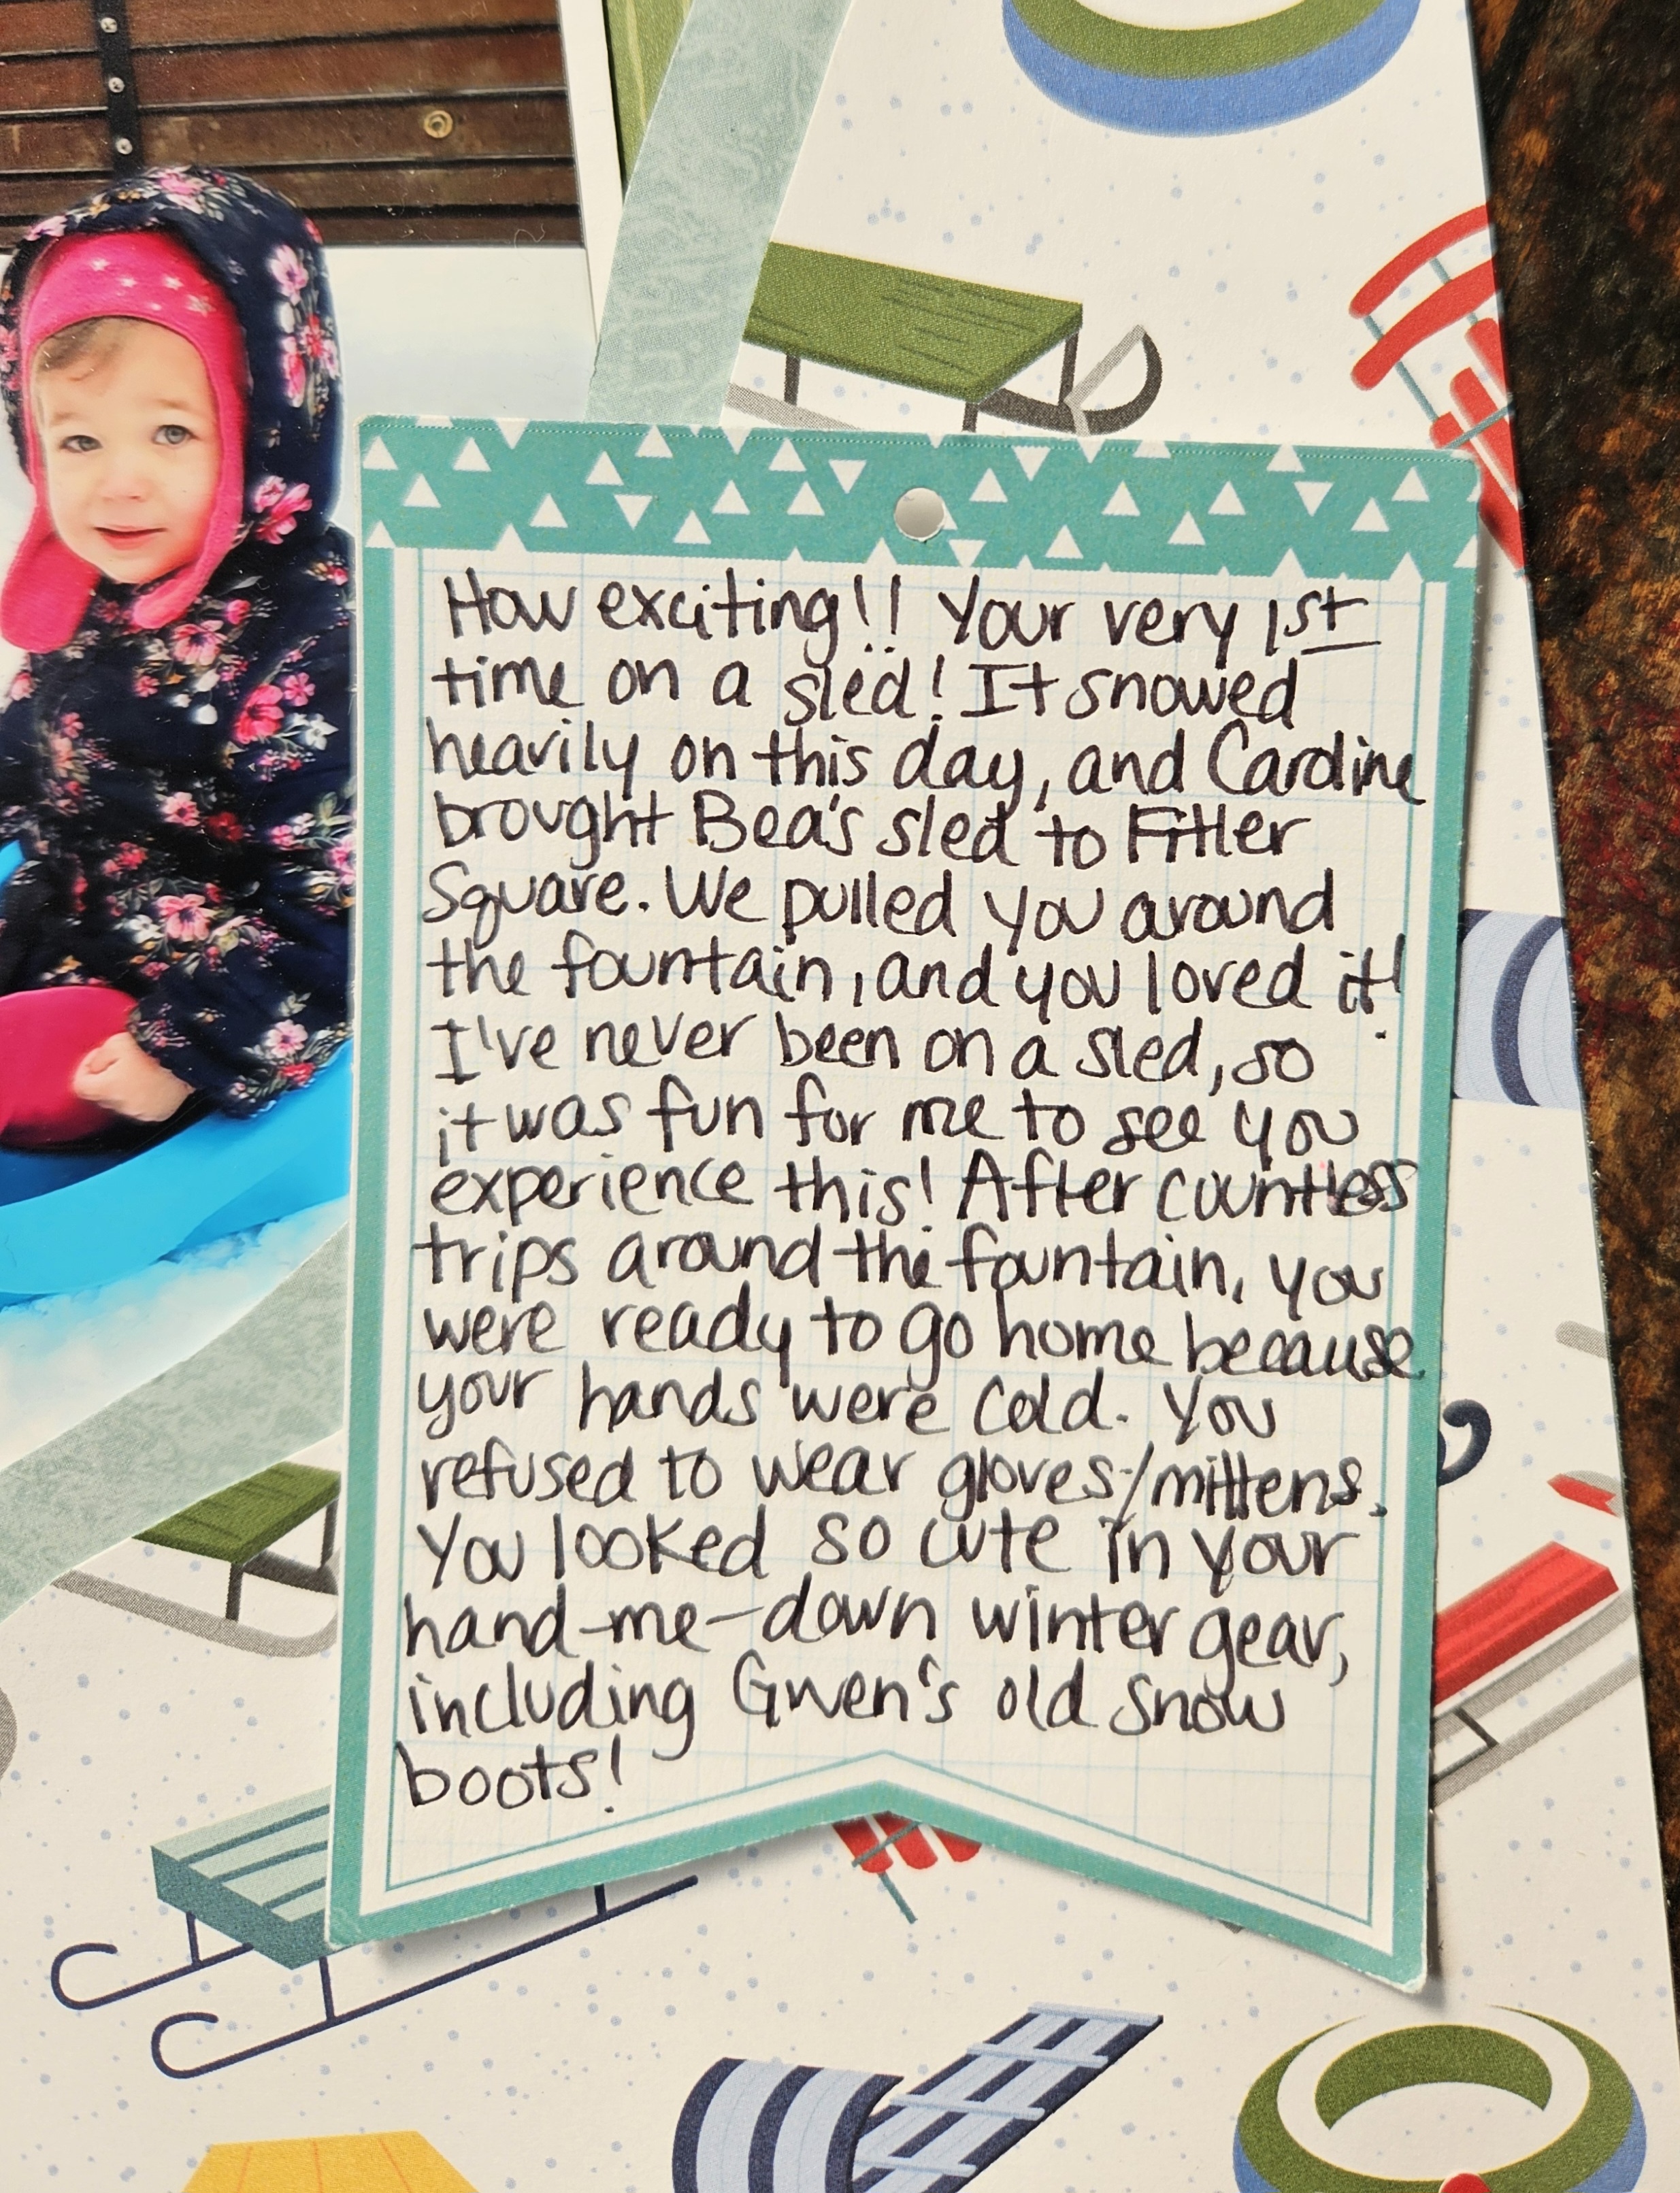 How exciting!! Your very 1st
time on a sled! It snowed
heavily on this day, and Caroline
brought Bea's sled to Fitler
Square. We pulled you around
the fountain, and you loved it!
I've never been on a sled, so
it was fun for me to see you
experience this! After countless
trips around the fountain, you
were ready to go home because
your hands were cold. You
refused to wear gloves/mittens.
You looked so cute in your
hand-me-down winter gear,
including Gwen's old snow
boots!